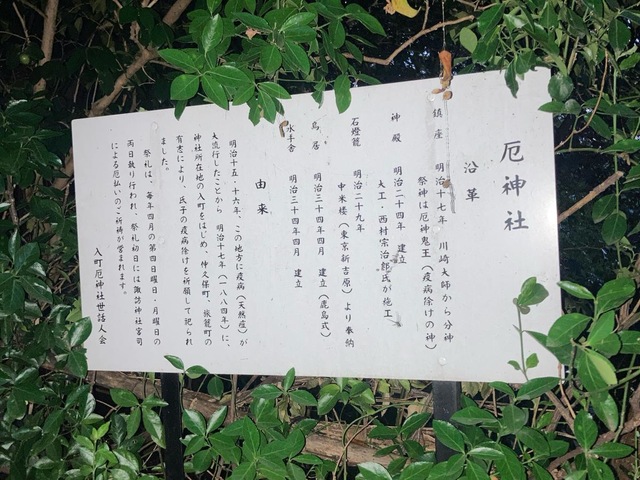 厄神社
沿革
鎮座 明治十七年 川崎大師から分神
祭神は厄神鬼王（疫病除けの神）
神殿 明治二十四年 建立
大工・西村宗治郎氏が施工
石燈籠 明治二十九年
中米楼（東京新吉原）より奉納
鳥居 明治三十四年四月 建立（鹿島式）
水手舎 明治三十四年四月 建立
由来
明治十五・十六年、この地方に疫病（天然痘）が
大流行したことから 明治十七年（一八八四年）に、
神社所在地の入町をはじめ、仲又保町、旅籠町の
有志により、氏子の疫病除けを祈願して祀られ
ました。
祭礼は、毎年四月の第四日曜日・月曜日の
両日執り行われ、祭礼初日には諏訪神社宮司
による厄払いのご祈祷が営まれます。
入町厄神社世話人会